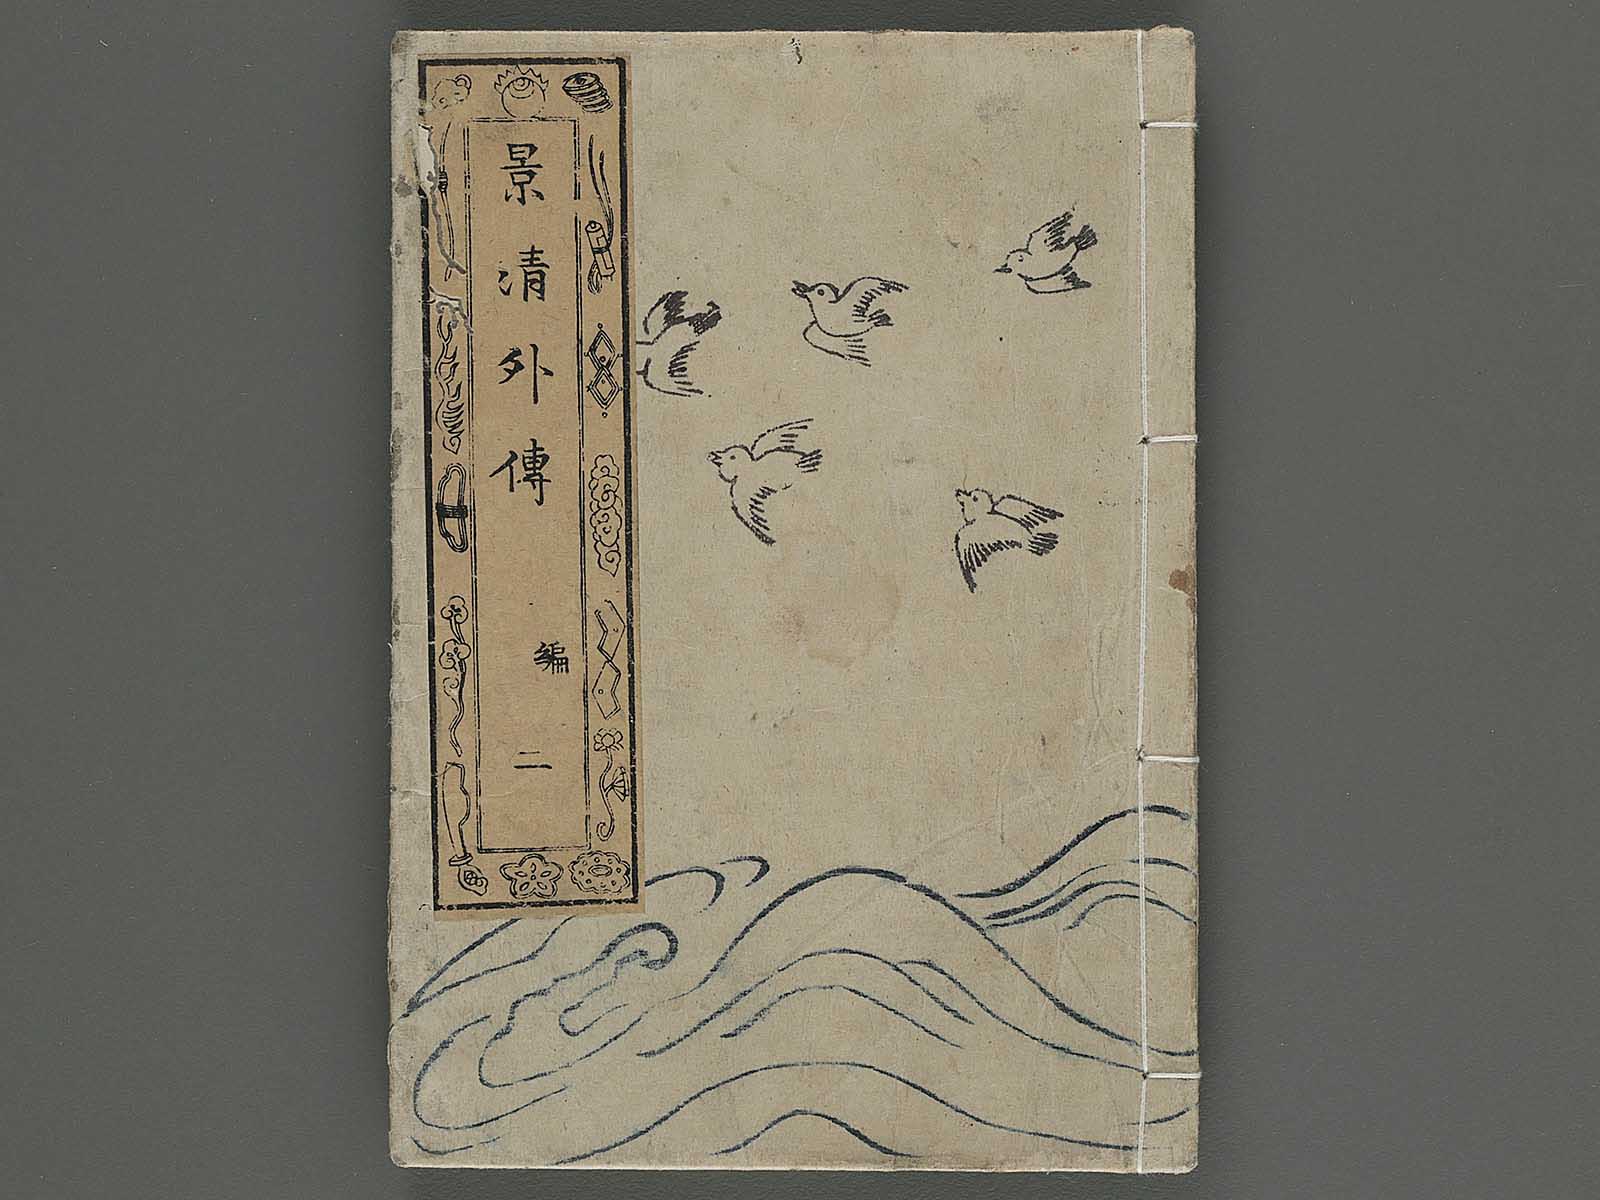 景清外傳
編
二